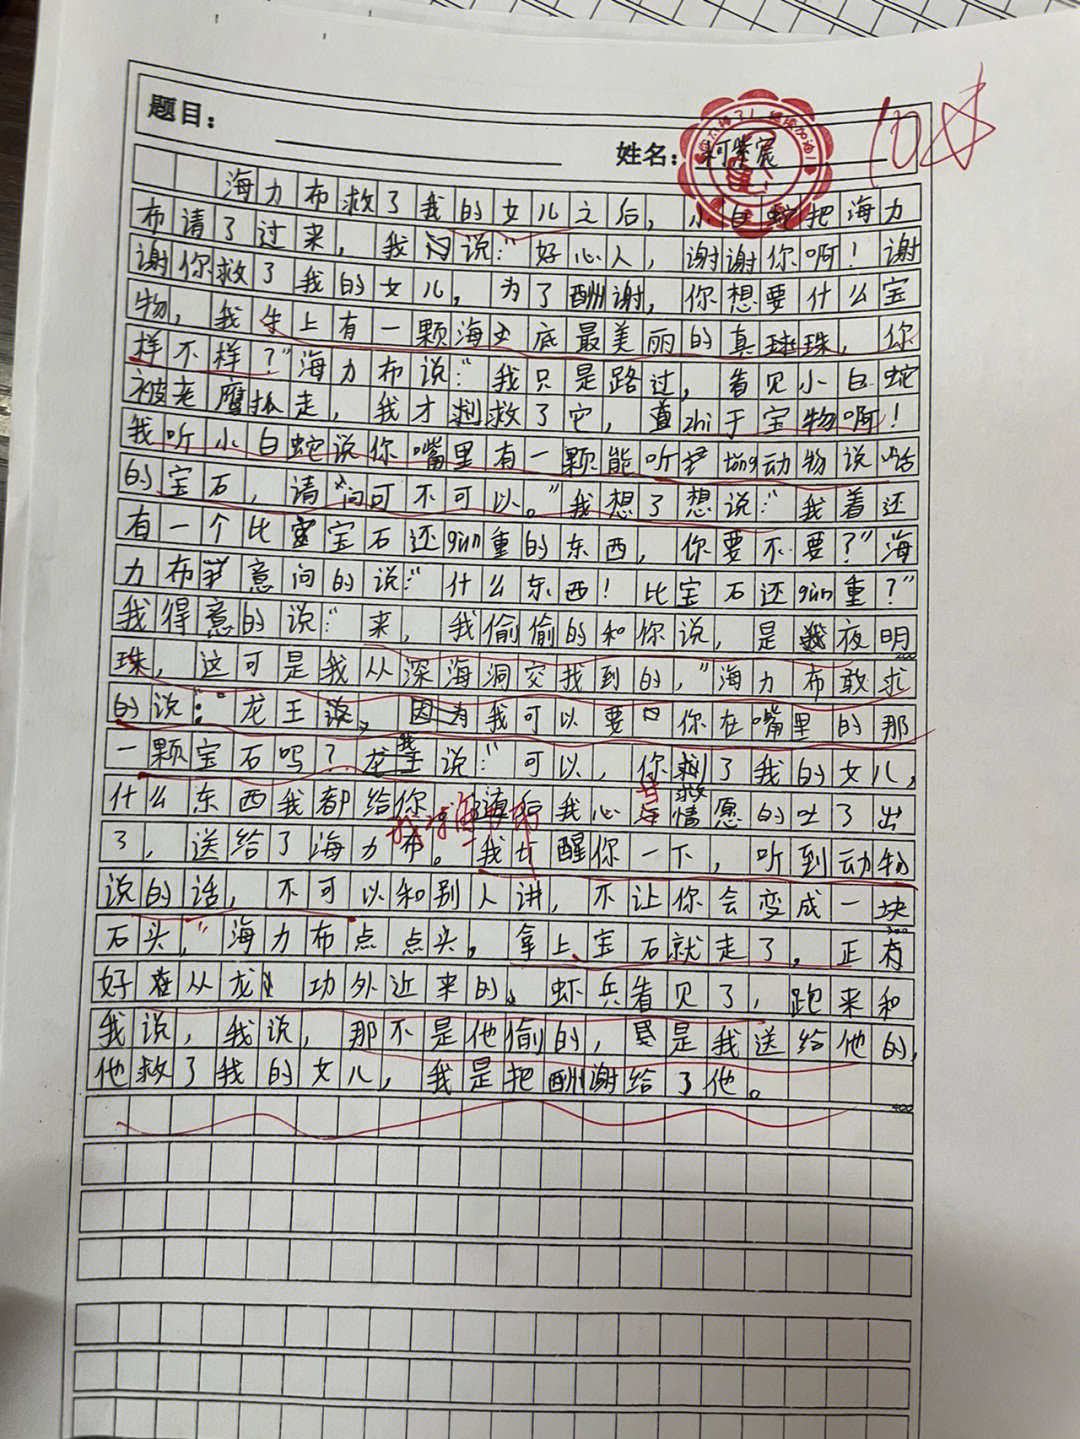 题目：
姓名：柯紫宸
10
海力布救了我的女儿之后，小白蛇把海力
布请了过来，我闪说：“好心人，谢谢你啊！谢
谢你救了我的女儿，为了酬谢，你想要什么宝
物，我上有一颗海底最美丽的真球珠，你
样不样？”海力布说：“我只是路过，看见小白蛇
被老鹰抓走，我才救了它，直zhi于宝物啊！
我听小白蛇说你嘴里有一颗能听tong动物说话
的宝石，请问可不可以。”我想了想说：“我着还
有一个比宝石还gui重的东西，你要不要？”海
力布意问的说：“什么东西！比宝石还gui重？”
我得意的说：“来，我偷偷的和你说，是夜明
200
珠，这可是我从深海洞交找到的，”海力布敢求
的说：“龙王，我可以要你在嘴里的那
一颗宝石吗？我说：“可以，你救了我的女儿，
什么东西我都给你我心甘情愿的吐了出
了，送给了海力布。我对海力布
我醒你一下，听到动物
说的话，不可以和别人讲，不让你会变成一块
300
石头，”海力布点点头。拿上宝石就走了。正有
好从龙功外近来的，虾兵看见了，跑来和
我说，我说，那不是他偷的，是我送给他的，
他救了我的女儿，我是把酬谢给了他。
400